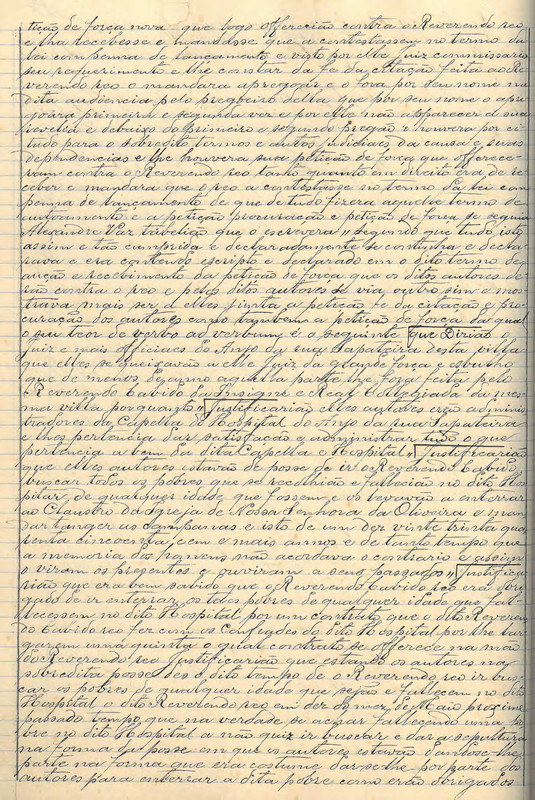 tição de força nova que logo offerecião contra o Reverendo reo
e lha recebesse e mandasse que a contestassem no termo da
lei com penna de lançamento e visto por elle Juiz comissario
seu requerimento e lhe constar da fe da citação feita ao Re
verendo reo o mandara apregoar e o fora por seu nome na
dita audiencia pelo pregoeiro della que por seu nome o apre
goara primeira e segunda vez e por elle não apparecer á sua
revelia e debaixo do primeiro e segundo pregão o houvera por ci
tado para o sobredito termos e autos judiciaes da causa e suas
dependencias e lhe houvera sua petição de força que offerece
ram contra o Reverendo reo tanto quanto em direito era de re
ceber e mandara que o reo a contestasse no termo da lei com
penna de lançamento de que de tudo fizera aquelle termo de
autoamento e a petição procuração e petição de força se seguia
Alexandre Vaz tabelião que o escrevera // segundo que tudo isto
assim e tão cumprida e declaradamente se continha e decla
rava e era contendo escripto e declarado em o dito termo de
aução e recebimento da petição de força que os ditos autores de
rão contra o reo e pelos ditos autores se via, outro sim e mos
trava mais ser a elles junta a petição fe da citação e pro
curação dos autores como tambem a petição de força da qual
o seu teor de verbo ad verbum é o seguinte que Dirião o
Juiz e mais officiaes do Anjo da rua Sapateira desta villa
que elles se queixavão a elle Juiz da grande força e esbulho
que de menos de anno aquella parte lhe fora feita pelo
Reverendo Cabido da Insigne e Real Collegiada da mes
ma villa porquanto // Justificarião elles autores erão adminis
tradores da Capella do Hospital do Anjo da rua Sapateira
e lhes pertencia dar satisfação e administrar tudo o que
pertencia a bem da dita Capella e Hospital // Justificarião
que elles autores estavão de posse de ir o Reverendo Cabido
buscar todos os pobres que se recolhião e fallecião no dito Hos
pital, de qualquer idade que fossem, e os levavão a enterrar
ao Claustro da Igreja de Nossa Senhora da Oliveira e man
dar tanger as campanas e isto de um dez vinte trinta qua
renta cincoenta, cem e mais annos e de tanto tempo que
a memoria dos homens não acordava o contrario e assim
o viram os presentes e ouviram a seus passados // Justifica
rião que era bem sabido que o Reverendo Cabido reo era obri
gado de ir enterrar os taes pobres de qualquer idade que fal
lecessem no dito Hospital por um contrato que o dito Reveren
do Cabido reo fez com os Confrades do dito Hospital por lhe lar
garem uma quinta o qual contrato se offerece na mão
do Reverendo reo Justificarião que estando os autores na
sobredita posse des do dito tempo de o Reverendo reo ir bus
car os pobres de qualquer idade que sejão e fallecem no dito
Hospital o dito Reverendo reo em dez do mez de Maio proximo
passado tempo que na verdade se achar fallecendo uma po
bre no dito Hospital a não quiz ir buscar e dar a sepultura
na forma da posse em que os autores estavão dandose-lhe
parte na forma que era costume dar-se-lhe por parte dos
autores para enterrar a dita pobre como erão obrigados